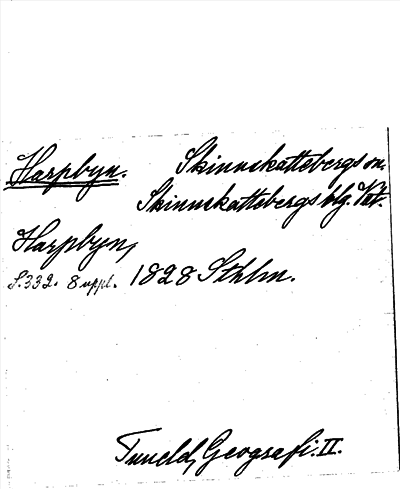 Harpbyn. Skinnskattebergs sn.
Skinnskattebergs blg. Vstm.
Harpbyn,
S. 332. 8 uppl. 1828 Sthlm.
Tuneld, Geografi. II.